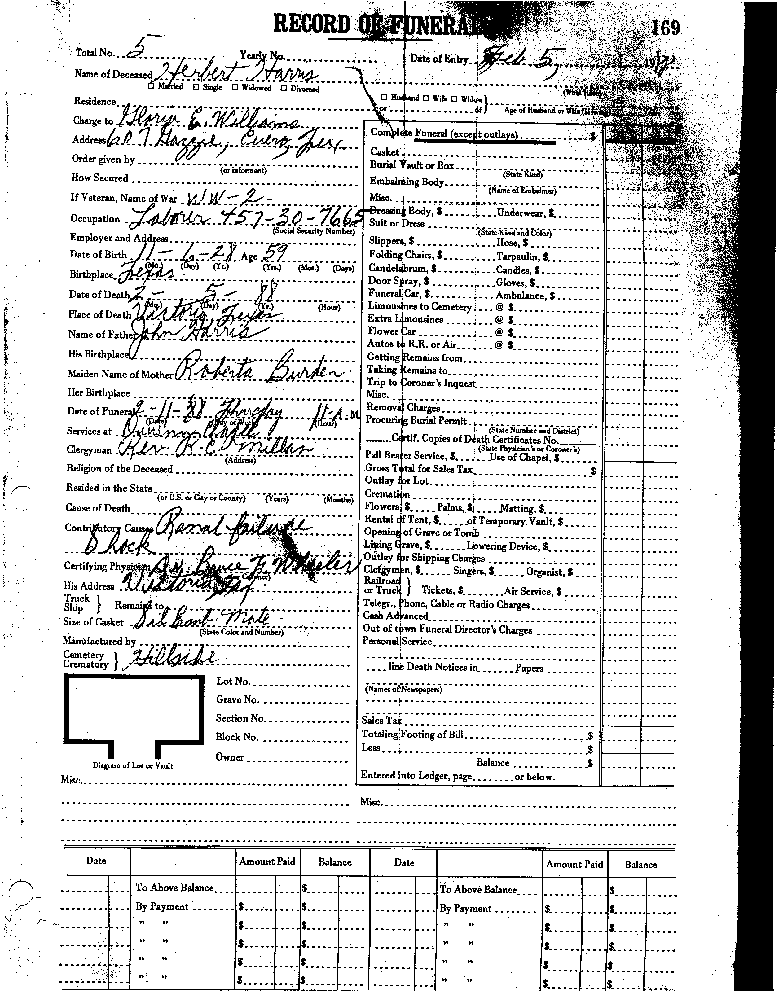 RECORD OF FUNERAL 169
Total No. 5 Yearly No. Date of Entry Feb. 5, 19
Name of Deceased Herbert Harris
☐ Married ☐ Single ☐ Widowed ☐ Divorced
☐ Husband ☐ Wife ☐ Widow } of Age of Husband or Wife
Residence
Charge to E. Williams
Address 607 Cuero, Tex
Order given by
(or informant)
How Secured
If Veteran, Name of War WW-2
Occupation Laborer 457-30-7665
(Social Security Number)
Employer and Address
Date of Birth 11-6-28 Age 59
(Mo.) (Day) (Yr.) (Yrs.) (Mos.) (Days)
Birthplace Texas
Date of Death 2-5-88
(Mo.) (Day) (Yr.) (Hour)
Place of Death Victoria Texas
Name of Father John Harris
His Birthplace
Maiden Name of Mother Roberta Burden
Her Birthplace
Date of Funeral 2-11-88 Thursday 11-A.M
(Date) (Day of Week) (Hour)
Services at
Clergyman Rev. R.C.
(Address)
Religion of the Deceased
Resided in the State
(or U.S. or City or County) (Years) (Months)
Cause of Death
Contributory Causes Renal failure
Shock
Certifying Physician Dr. Bruce Wheeler
His Address Victoria Tex
Truck
Ship } Remains to
Size of Casket
(State Color and Number)
Manufactured by
Cemetery
Crematory } Hillside
Lot No.
Grave No.
Section No.
Block No.
Owner
Diagram of Lot or Vault
Misc.
Complete Funeral (except outlays) $
Casket
Burial Vault or Box
(State Kind)
Embalming Body
(Name of Embalmer)
Misc.
Dressing Body, $ Underwear, $
Suit or Dress
(State Kind and Color)
Slippers, $ Hose, $
Folding Chairs, $ Tarpaulin, $
Candelabrum, $ Candles, $
Door Spray, $ Gloves, $
Funeral Car, $ Ambulance, $
Limousines to Cemetery @ $
Extra Limousines @ $
Flower Car @ $
Autos to R.R. or Air @ $
Getting Remains from
Taking Remains to
Trip to Coroner's Inquest
Misc.
Removal Charges
Procuring Burial Permit
(State Number and District)
Certif. Copies of Death Certificates No.
(State Physician's or Coroner's)
Pall Bearer Service, $ Use of Chapel, $
Gross Total for Sales Tax $
Outlay for Lot
Cremation
Flowers, $ Palms, $ Matting, $
Rental of Tent, $ of Temporary Vault, $
Opening of Grave or Tomb
Lining Grave, $ Lowering Device, $
Outlay for Shipping Charges
Clergymen, $ Singers, $ Organist, $
Railroad
or Truck } Tickets, $ Air Service, $
Telegr., Phone, Cable or Radio Charges
Cash Advanced
Out of town Funeral Director's Charges
Personal Service
line Death Notices in Papers
(Names of Newspapers)
Sales Tax
Totaling Footing of Bill $
Less $
Balance $
Entered into Ledger, page or below.
Misc.
Date Amount Paid Balance Date Amount Paid Balance
To Above Balance $ To Above Balance $
By Payment $ $ By Payment $ $
" " $ $ " " $ $
" " $ $ " " $ $
" " $ $ " " $ $
" " $ $ " " $ $